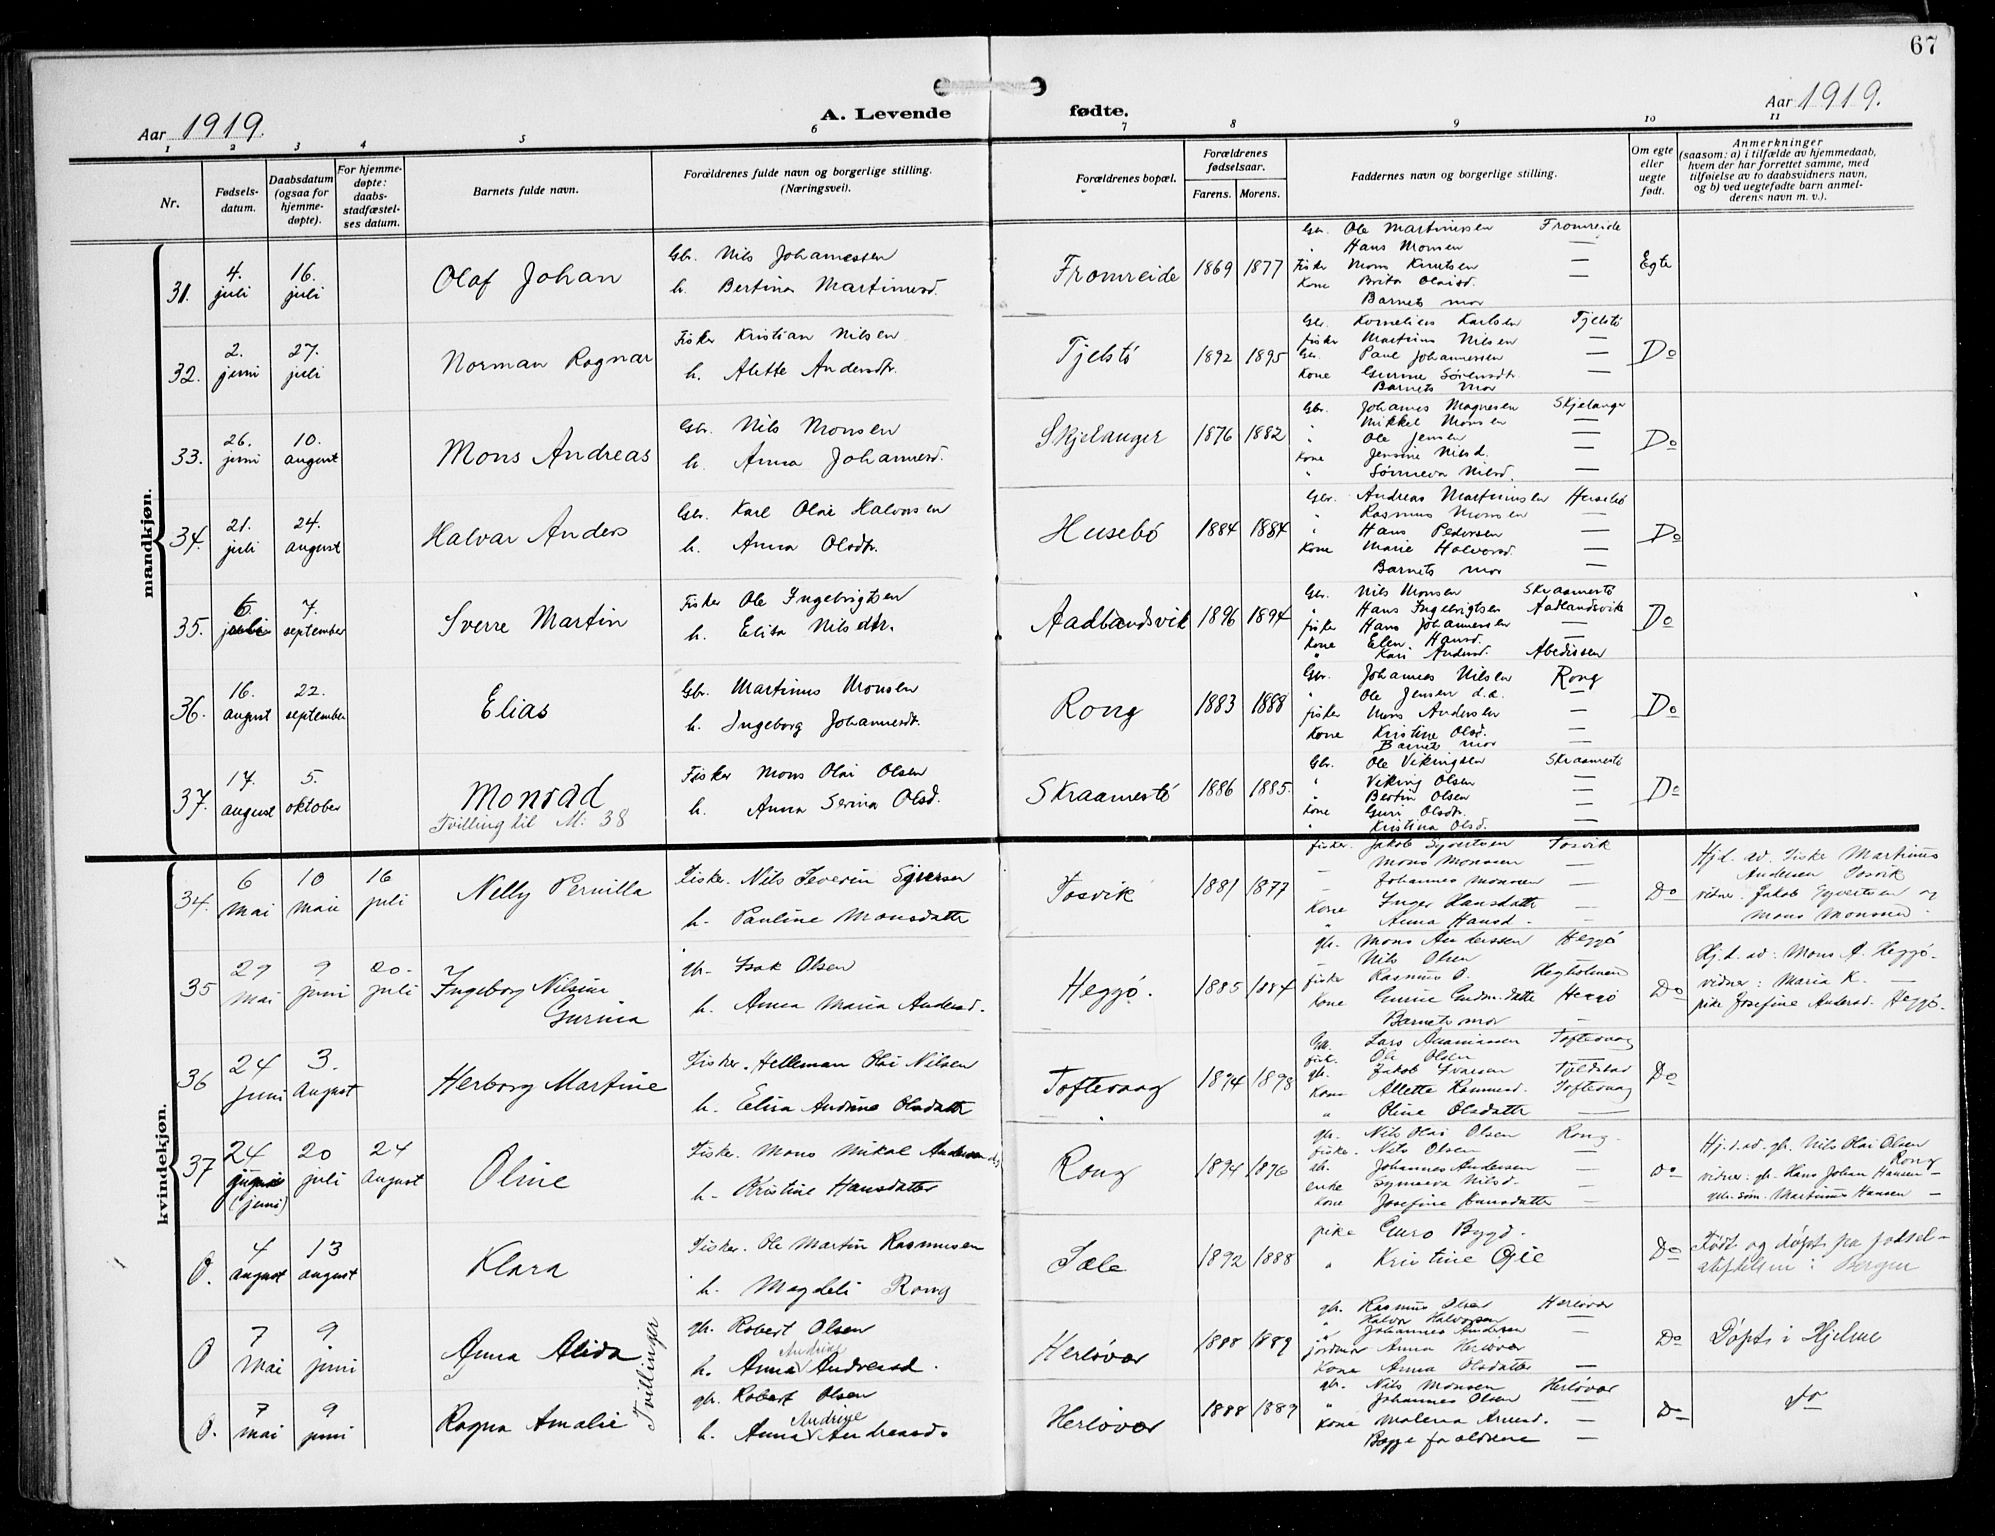 67
Aar 1919.
A. Levende fødte.
Aar 1919.
1 2 3 4 5 6 7 8 9 10 11
Nr.
Fødsels-
datum.
Daabsdatum
(ogsaa for
hjemme-
døpte).
For hjemme-
døpte:
daabs-
stadfæstel-
ses datum.
Barnets fulde navn.
Forældrenes fulde navn og borgerlige stilling.
(Næringsvei).
Forældrenes bopæl.
Forældrenes
fødselsaar.
Farens. Morens.
Faddernes navn og borgerlige stilling.
Om egte
eller
uegte
født.
Anmerkninger
(saasom: a) i tilfælde av hjemmedaab,
hvem der har forrettet samme, med
tilføielse av to daabsvidners navn,
og b) ved uegtefødte barn anmel-
derens navn m. v.).
mandkjøn.
31. 4. juli 16. juli Olaf Johan
Gbr. Nils Johannessen
h. Bertina Martinusd.
Fromreide 1869 1877
Gbr. Ole Martinussen Fromreide
" Hans Monsen —
Fisker Mons Knutsen —
Kone Brita Olaisd. —
Barnets mor
Egte
32. 2. juni 27. juli Norman Ragnar
Fisker Kristian Nilsen
h. Alette Andersdtr.
Tjelstø 1892 1895
Gbr. Kornelius Karlsen Tjelstø
fisker Martinus Nilsen —
Gbr. Paul Johannessen —
Kone Gurine Sørensdtr —
Barnets mor
Do
33. 26. juni 10. august Mons Andreas
Gbr. Nils Monsen
h. Anna Johannesd.
Skjelanger 1876 1882
Gbr. Johannes Magnesen Skjelanger
" Mikkel Monsen —
" Ole Jensen —
Kone Jensine Nilsd. —
" Sønneva Nilsd. —
Do
34. 21. juli 24. august Halvar Anders
Gbr. Karl Olai Halvorsen
h. Anna Olsdtr.
Husebø 1884 1884
Gbr. Andreas Martinussen Husebø
" Rasmus Monsen —
" Hans Pedersen —
Kone Marie Halvorsd. —
Barnets mor —
Do
35. 6. juli 7. september Sverre Martin
Fisker Ole Ingebrigtsen
h. Elisa Nilsdtr.
Aadlandsvik 1896 1894
Gbr. Nils Monsen Skraamestø
" Hans Ingebrigtsen Aadlandsvik
fisker Hans Johannessen —
Kone Elen Hansd. —
" Kari Andersd.
Do
36. 16. august 22. september Elias
Gbr. Martinus Monsen
h. Ingeborg Johannesdt.
Rong 1883 1888
Gbr. Johannes Nilsen Rong
" Ole Jensen d.æ. —
fisker Mons Andersen —
Kone Kristine Olsd. —
Barnets mor —
Do
37. 17. august 5. oktober Monrad
Tvilling til M: 38
Fisker Mons Olai Olsen
h. Anna Serina Olsd.
Skraamestø 1886 1885.
Gbr. Ole Vikingsen Skraamestø
" Viking Olsen —
" Bertin Olsen —
Kone Guri Olsdtr. —
" Kristina Olsd. —
Do
kvindekjøn.
34. 6 mai 10 mai 16 juli Nelly Pernilla
Fisker. Nils Severin Syversen
h. Pauline Monsdatter
Tosvik 1881 1877
fisker. Jakob Syvertsen Tosvik
— Mons Monsen —
— Johannes Monsen —
Kone Inger Hansdatter —
" Anna Hansd. —
Do
Hjd. av. Fiske Martinus
Andersen Tosvik
vidner. Jakob Syvertsen og
Mons Monsen.
35 29 mai 9 juni 20. juli Ingeborg Nilsine
Gurina
gbr. Isak Olsen
h. Anna Maria Andersd.
Heggø. 1885 1884
gbr. Mons Anderssen Heggø
— Nils Olsen —
fiske Rasmus O. Hegholmen
Kone Gurine Gudm.datter Heggø
Barnets mor —
Do
Hj.d. av: Mons A. Heggø.
vidner: Maria K. —
pike Josefine Andersd. Heggø.
36 24 juni 3. August Herborg Martine
Fisker. Helleman Olai Nilsen
h. Elisa Andrine Olsdatter
Toftevaag 1894 1898
Gbr. Lars Toftevaag
fisk. Ole Olsen —
gbr. Jakob Ivarsen Tjeldstad
Kone Allette Rasmusd. Toftevaag
" Oline Olsdatter —
Do
37 24 juni (juni) 20 juli 24 August Oline
Fisker. Mons Mikal Andersen
h. Kristine Hansdatter
Rong 1894 1896
gbr. Nils Olai Olsen Rong.
fisker. Nils Olsen —
gb. Johannes Andersen —
enke Synneva Nilsd. —
Kone Josefine Hansdatter —
Do
Hj.d.av. gb. Nils Olai Olsen
Rong
vidner: gb. Hans Johan Hansen —
gbr. søn. Martinus Hansen —
0. 4 august 13 august Klara
Fisker. Ole Martin Rasmussen
h. Magdeli Rong
Sæle 1892 1888
pike Guro Bygd.
" Kristine Opie
Do
Født og døpt paa fødsel-
stiftelsen i Bergen
0 7 mai 9 juni Anna Alida
Tvillinger
gb. Robert Olsen
Andrine
h. Anna Andreasd.
Herløvær 1888 1889
gbr. Rasmus Olsen Herløvær
" Halvor Halvorsen —
" Johannes Andersen —
jordmor Anna Herløvær
Kone Anna Olsdatter —
Do
Døpt i Hjelme
0. 7 mai 9 juni Ragna Amalie
gbr. Robert Olsen
Andrine
h. Anna Andreasd.
Herløvær 1888 1889
gb. Nils Monsen Herløvær
" Johannes Olsen —
Kone Malena —
Begge forældrene —
Do
do